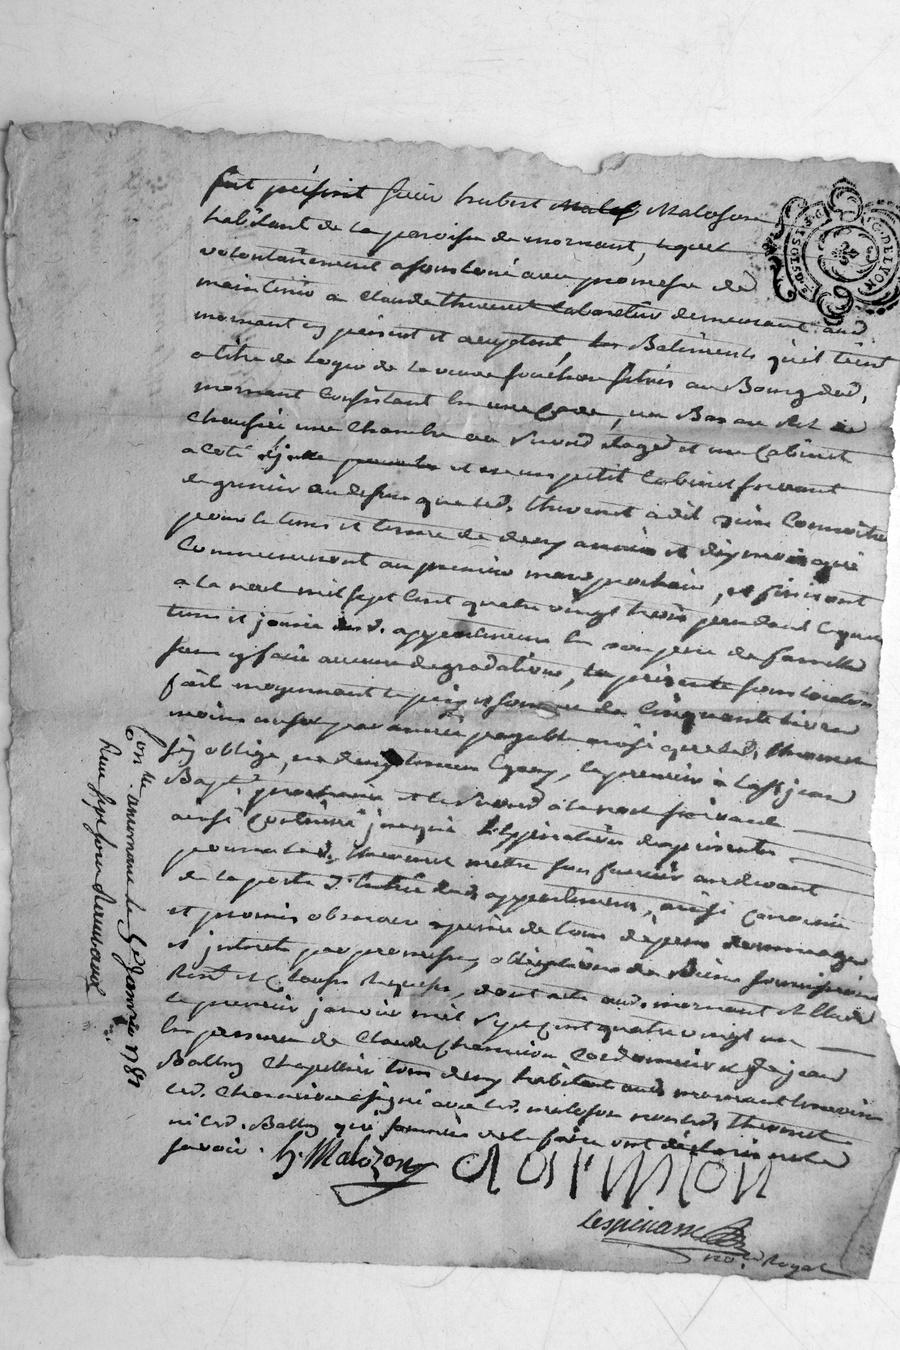 fut présent sieur hubert Malozon
habitant de la paroisse de mornant, lequel
volontairement a sous loué avec promesse de
maintenir a Claude thevenet laboureur demeurant aud.
mornant cy présent et acceptant, les Batiments qu'il tient
a titre de loyer de la veuve souchon situés au Bourg dud.
mornant Consistant en une Cave, un Bas au Rez de
chaussée une chambre au second étage et un Cabinet
a coté et un petit Cabinet servant
de grenier au dessus que led. thevenet a dit bien Connoitre
pour le tems et terme de deux années et dix mois qui
Commenceront au premier mars prochain, et finiront
a la noel mil sept Cent quatre vingt trois pendant lequel
tems il jouira desd. appartements en bon pere de famille
sans y faire aucune degradation, la présente sous location
fait moyennant le prix et somme de Cinquante livres
moins un sol par année payable ainsi que led. thevenet
s'y oblige, en deux termes egaux, le premier à la st jean
Bapte. prochaine et le second a la noel suivante
ainsi Continué jusqu'à l'expiration des présentes
pourra led. thevenet mettre son fumier au devant
de la porte d'entrée desd. appartements, ainsi Convenu
et promis observer a peine de tous depens dommages
et interets par promesses, obligations de Biens soumissions
Renon. et Clauses Requises, dont acte aud. mornant
le premier janvier mil sept Cent quatre vingt un
en présence de Claude Charvion Cordonnier et de jean
Bally Chapellier tous deux habitant aud. mornant temoins
led. Charvion a signé avec led. malozon non led. thevenet
ni led. Bally qui sommés de le faire ont déclaré ne le
savoir. h. Malozon
Lesperasse
no.re Royal
Con.lle a mornant le 5e. Janvier 1781